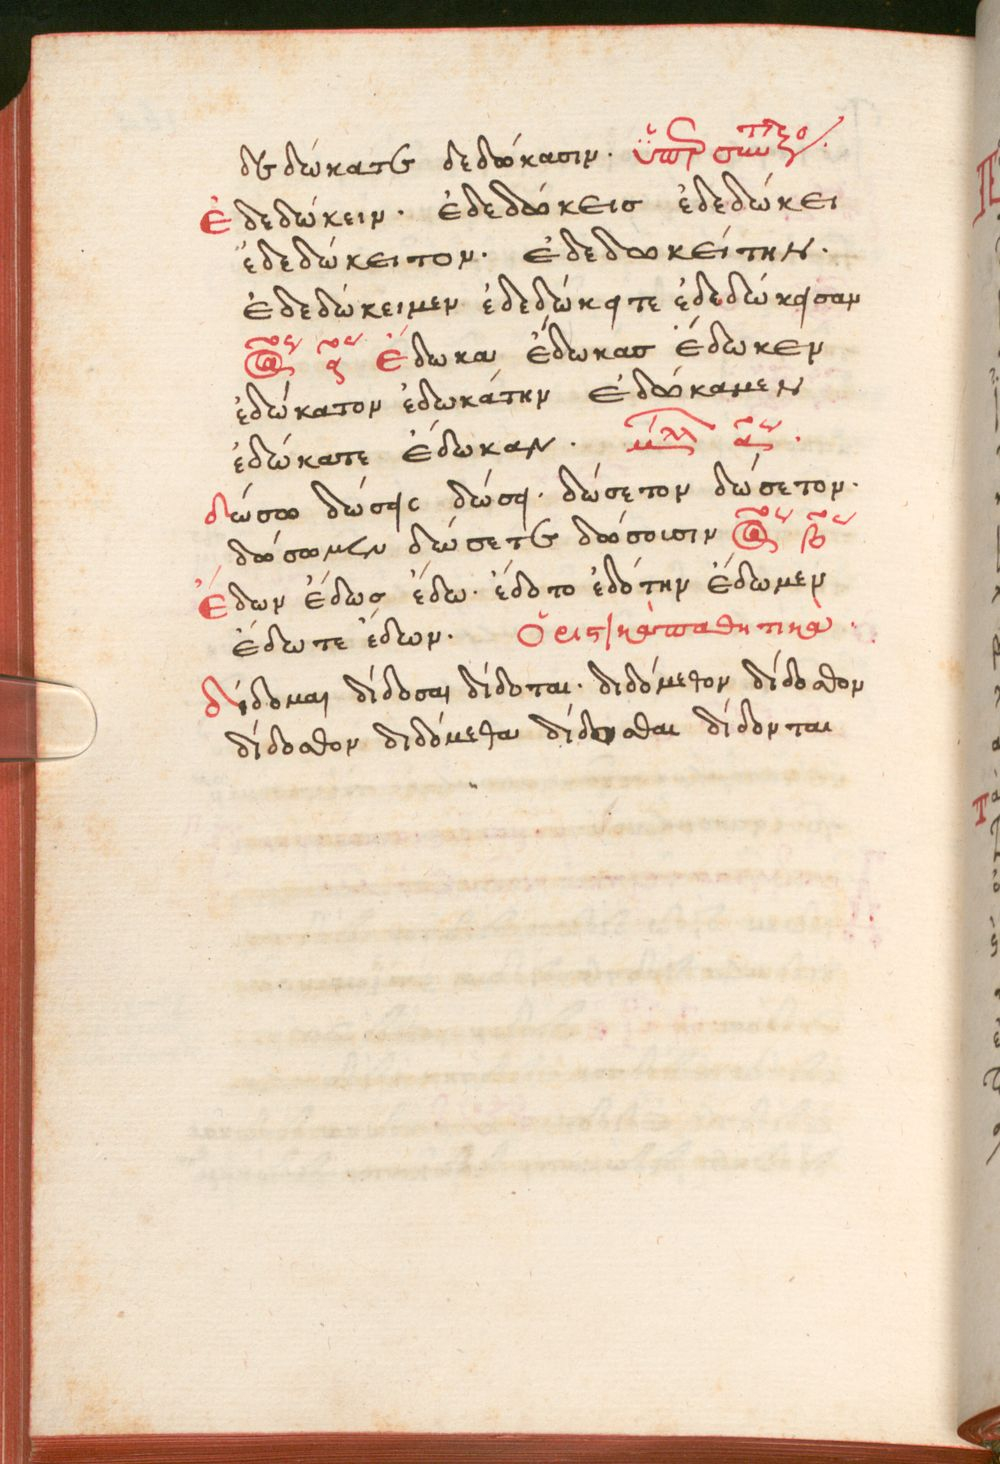 δεδώκατε δεδώκασιν.
Ἐδεδώκειν. ἐδεδώκεισ ἐδεδώκει
ἐδεδώκειτον. ἐδεδωκείτην.
ἐδεδώκειμεν ἐδεδώκειτε ἐδεδώκεισαν
Ἔδωκα ἔδωκασ ἔδωκεν
ἐδώκατον ἐδωκάτην ἐδώκαμεν
ἐδώκατε ἔδωκαν.
δώσω δώσεις δώσει. δώσετον δώσετον.
δώσωμεν δώσετε δώσοισιν
Ἔδων ἔδωσ ἔδω. ἔδοτο ἐδότην ἔδωμεν
ἔδωτε ἔδων. Ὁριστικὰ παθητικὰ.
δίδομαι δίδοσαι δίδοται. διδόμεθον δίδοσθον
δίδοσθον διδόμεθα δίδοσθαι δίδονται